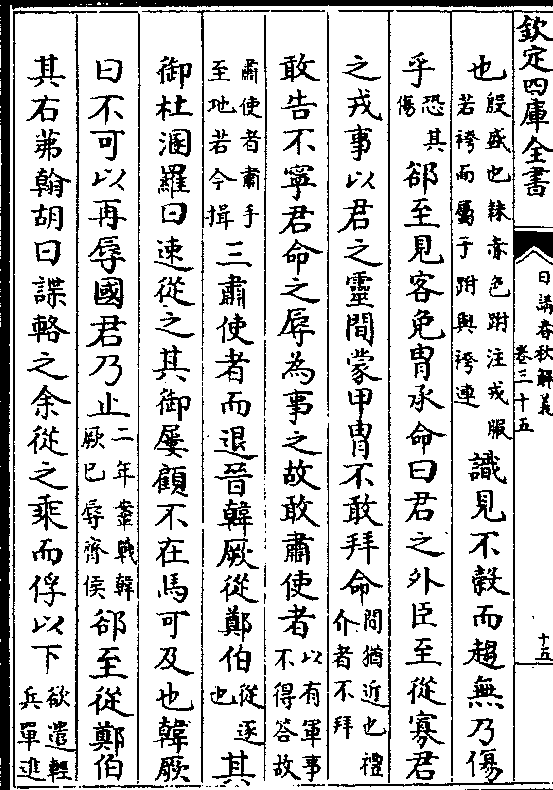 欽定四庫全書
日講春秋解義
卷三十五
十五
也殷盛也韎赤色跗注戎服
若袴而屬于跗與袴連識見不穀而趨無乃傷
乎恐其
傷郤至見客免胄承命曰君之外臣至從寡君
之戎事以君之靈間蒙甲胄不敢拜命間猶近也禮
介者不拜
敢告不寧君命之辱為事之故敢肅使者以有軍事
不得答故
肅使者肅手
至地若今揖三肅使者而退晉韓厥從鄭伯從逐
也其
御杜溷羅曰速從之其御屢顧不在馬可及也韓厥
曰不可以再辱國君乃止二年鞌戰韓
厥已辱齊侯郤至從鄭伯
其右茀翰胡曰諜輅之余從之乘而俘以下欲遣輕
兵單進